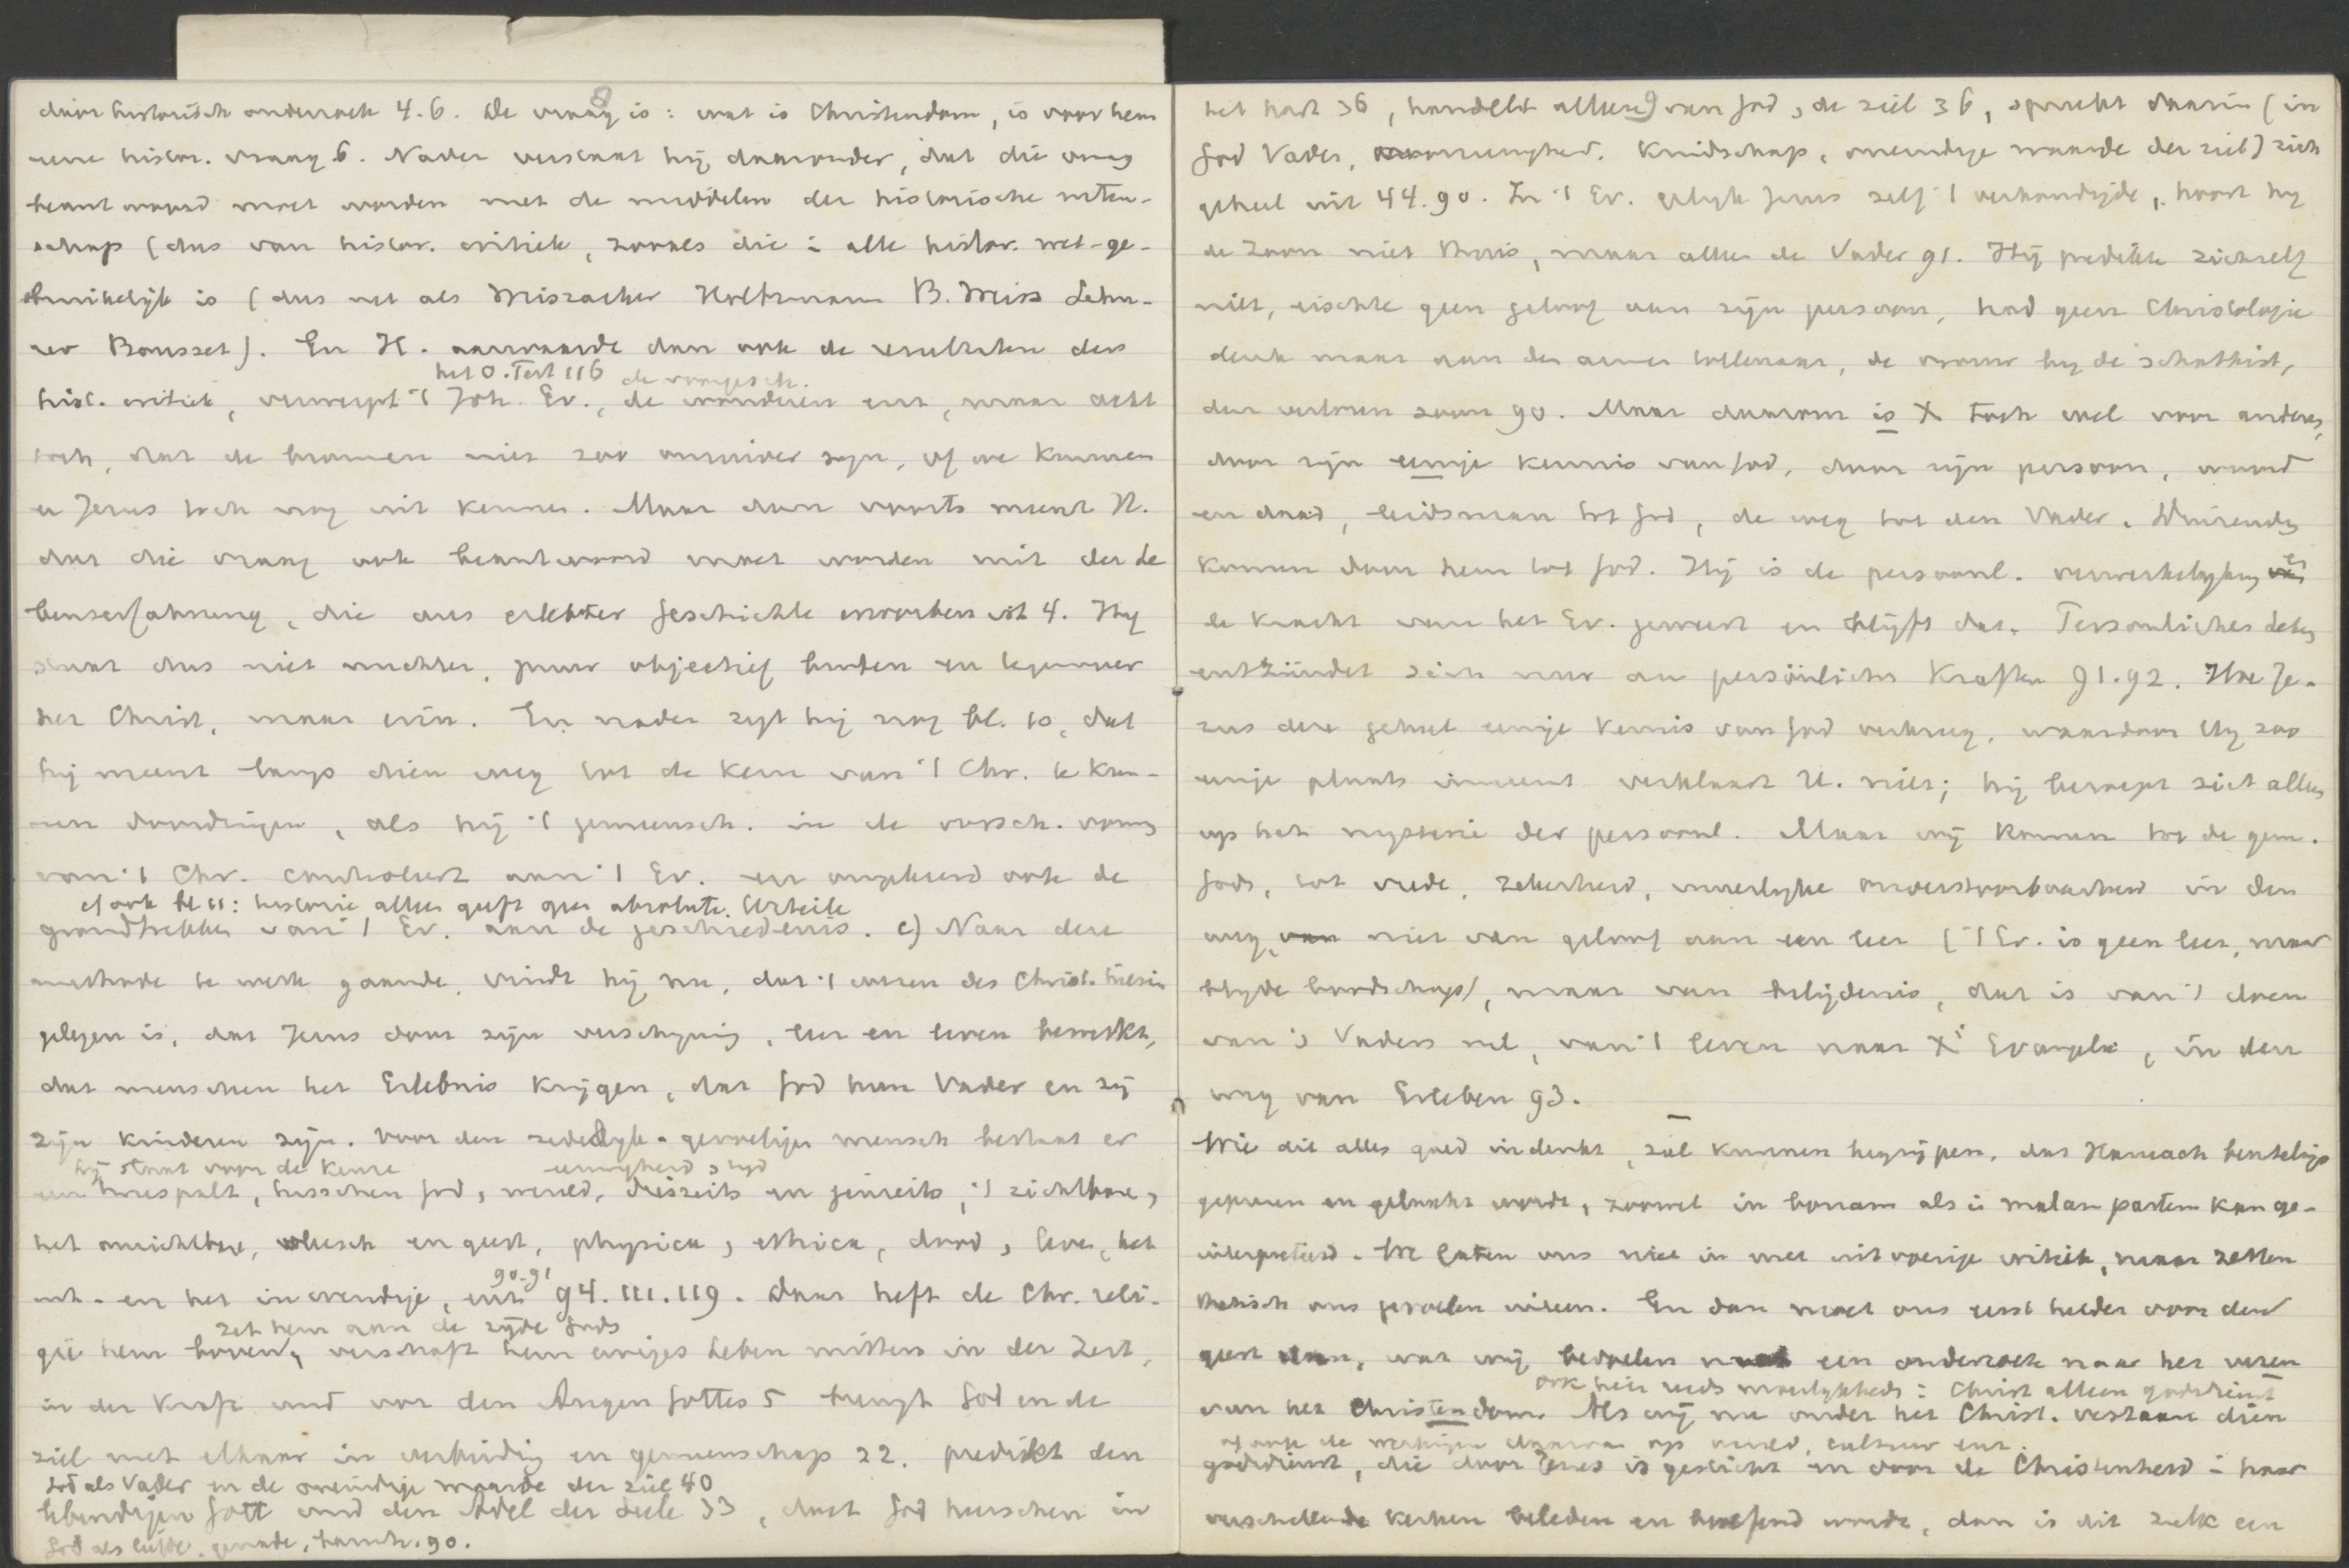 8
door historisch onderzoek 4.6. De vraag is: wat is Christendom, is voor hem
eene histor. vraag 6. Nader verstaat hij daaronder, dat die vraag
beantwoord moet worden met de middelen der historische weten-
schap (dus van histor. critiek, zooals die i alle histor. wet. ge-
bruikelijk is (dus net als Weiszäcker Holtzmann B. Weiss Schü-
rer Bousset). En H. aanvaardde dan ook de resultaten der
het O. Test 116 de voorgesch.
hist. critiek, verwerpt 't Joh. Ev., de wonderen enz, maar acht
toch, dat de bronnen niet zoo zijn, of we kunnen
er Jezus toch nog uit kennen. Maar dan voorts meent H.
dat die vraag ook beantwoord moet worden mit der Le
benserfahrung, die aus erlebter Geschichte erworben ist 4. Hij
staat dus niet nuchter, puur objectief buiten en tegenover
het Christ, maar erin. En nader zegt hij nog bl. 10, dat
hij meent langs dien weg tot de kern van 't Chr. te kun-
nen doordringen, als hij 't gemeensch. in de versch. vorm
van 't Chr. controleert aan 't Ev. en omgekeerd ook de
cf ook bl 11: historie alleen geeft geen absolute Urteile
grondtrekken van 't Ev. aan de geschiedenis. c) Naar deze
methode te werk gaande, vindt hij nu, dat 't wezen des Christ. hierin
gelegen is, dat Jezus door zijn verschijning, leer en leven bewerkt,
dat menschen het Erlebnis krijgen, dat God hun Vader en zij
zijn kinderen zijn. Voor den zedelijk-gevoeligen mensch bestaat er
hij staat voor de keuze eeuwigheid & tijd
een tweespalt, tusschen God & wereld, diesseits en jenseits, 't zichtbare &
het onzichtbare, vleesch en geest, physica & ethica, dood & leven, het
90-91
uit- en het inwendige, enz 94. 111. 119. Daar heft de Chr. reli-
zet hem aan de zijde Gods
gie hem boven, verschaft hem ewiges Leben mitten in der Zeit,
in der Kraft und vor den Augen Gottes 5 brengt God en de
ziel met elkaar in verbinding en gemeenschap 22. predikt den
God als Vader en de oneindige waarde der ziel 40
lebendigen Gott und den Adel der Seele 33, doet God heerschen in
God als liefde, genade, barmh. 90.
9
het hart 36, handelt alleen van God & de ziel 36, spreekt daarin (in
God Vader, Kindschap, oneindige waarde der ziel) zich
geheel uit 44. 90. In 't Ev. gelijk Jezus zelf 't verkondigde, hoort hij
de Zoon niet thuis, maar alleen de Vader 91. Hij predikte zichzelf
niet, eischte geen geloof aan zijn persoon, had geen Christologie
denk maar aan den armen tollenaar, de vrouw bij de schatkist,
den verloren zoon 90. Maar daarom is X toch wel voor anderen,
door zijn eenige kennis van God, door zijn persoon, woord
en daad, leidsman tot God, de weg tot den Vader. Duizenden
komen door hem tot God. Hij is de persoonl. verwerkelijking en
de kracht van het Ev. geweest en blijft dat. Persönliches Leben
entzündet sich nur an persönlichen Kräften 91. 92. Hoe Je-
zus deze geheel eenige kennis van God verkreeg, waardoor Hij zoo
eenige plaats inneemt verklaart H. niet; hij beroept zich alleen
op het mysterie der persoonl. Maar wij komen tot de gem.
Gods, tot vrede, zekerheid, innerlijke onverstoorbaarheid in den
weg, niet van geloof aan een leer ('t Ev. is geen leer, maar
blijde boodschap), maar van belijdenis, dat is van 't doen
van 's Vaders wil, van 't leven naar X's Evangelie, in den
weg van Erleben 93.
Wie dit alles goed indenkt, zal kunnen begrijpen, dat Harnack beurtelings
geprezen en gelaakt werd, zoowel in bonam als i malam partem kan ge-
interpreteerd. We laten ons niet in met uitvoerige critiek, maar zetten
thetisch ons gevoelen uiteen. En dan moet ons eerst helder voor den
geest staan, wat wij bedoelen met een onderzoek naar het wezen
ook hier reeds moeilijkheid: Christ alleen godsdienst
van het Christendom. Als wij nu onder het Christ. verstaan dien
of ook de werkingen daarvan op wereld, cultuur enz
godsdienst, die door Jezus is gesticht en door de Christenheid i haar
verschillende kerken beleden en beoefend wordt, dan is dit zulk een